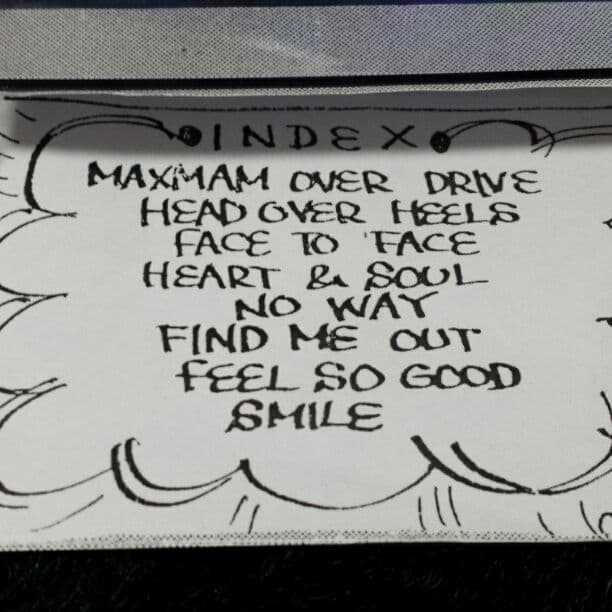 INDEX
MAXMAM OVER DRIVE
HEAD OVER HEELS
FACE TO FACE
HEART & SOUL
NO WAY
FIND ME OUT
FEEL SO GOOD
SMILE